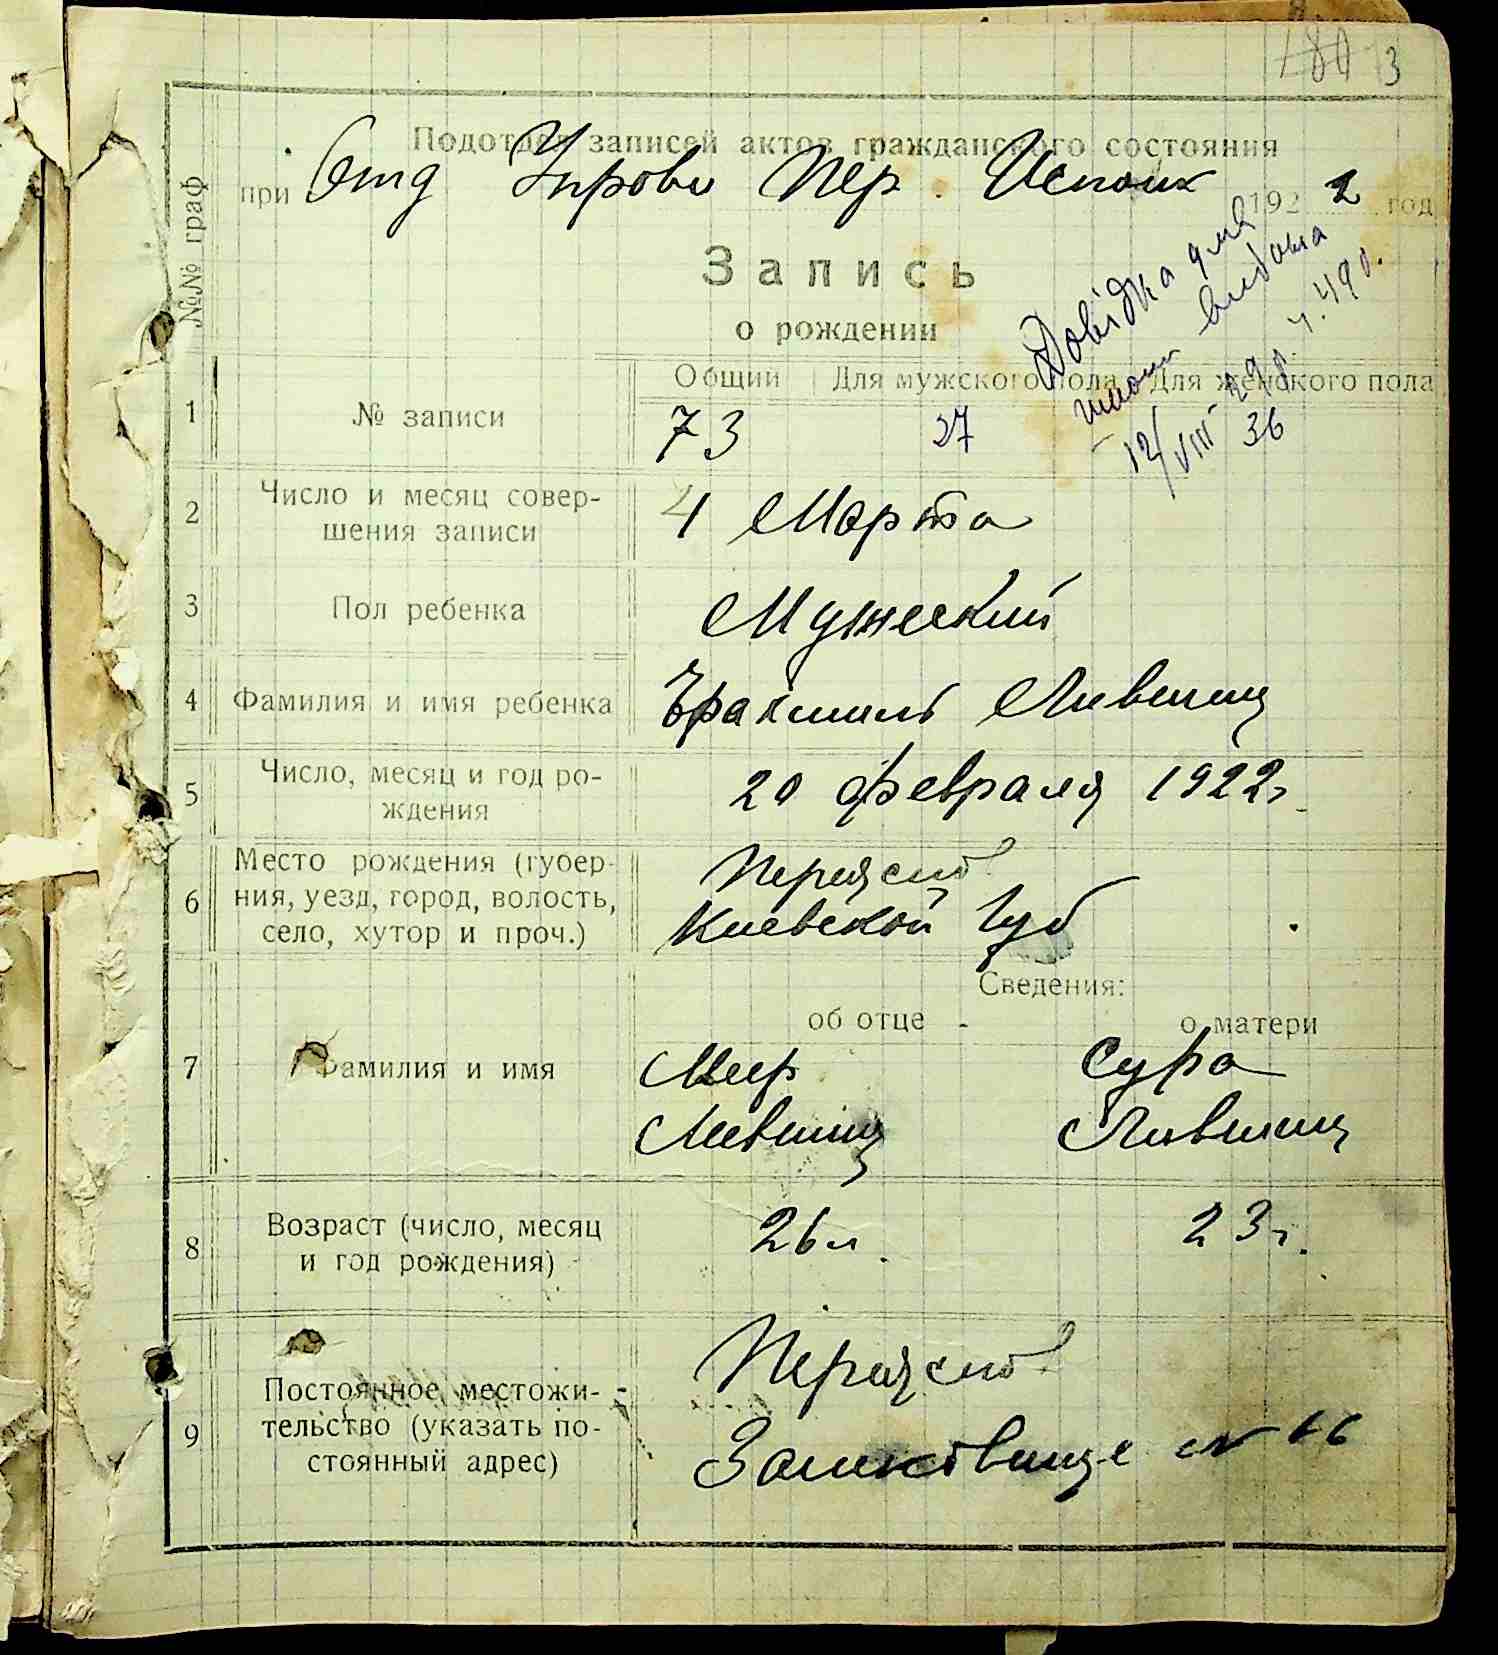 3
Подотдел записей актов гражданского состояния
при Отд Управ Пер. Исполк 1922 год
№№ граф
Запись
о рождении
Довідка для
школи видана
ч. 490.
12/VIII 36
Общий Для мужского пола Для женского пола
1 № записи 73 27
2 Число и месяц совер-
шения записи
4 Марта
3 Пол ребенка Мужеский
4 Фамилия и имя ребенка Ерахмиль Лившиц
5 Число, месяц и год ро-
ждения
20 февраля 1922 г
6 Место рождения (губер-
ния, уезд, город, волость,
село, хутор и проч.)
Переяслов
Киевской Губ
Сведения:
об отце о матери
7 Фамилия и имя
Меер Сура
Лившиц Лившиц
8 Возраст (число, месяц
и год рождения)
26 л. 23 г.
9 Постоянное местожи-
тельство (указать по-
стоянный адрес)
Переяслов
№ 66